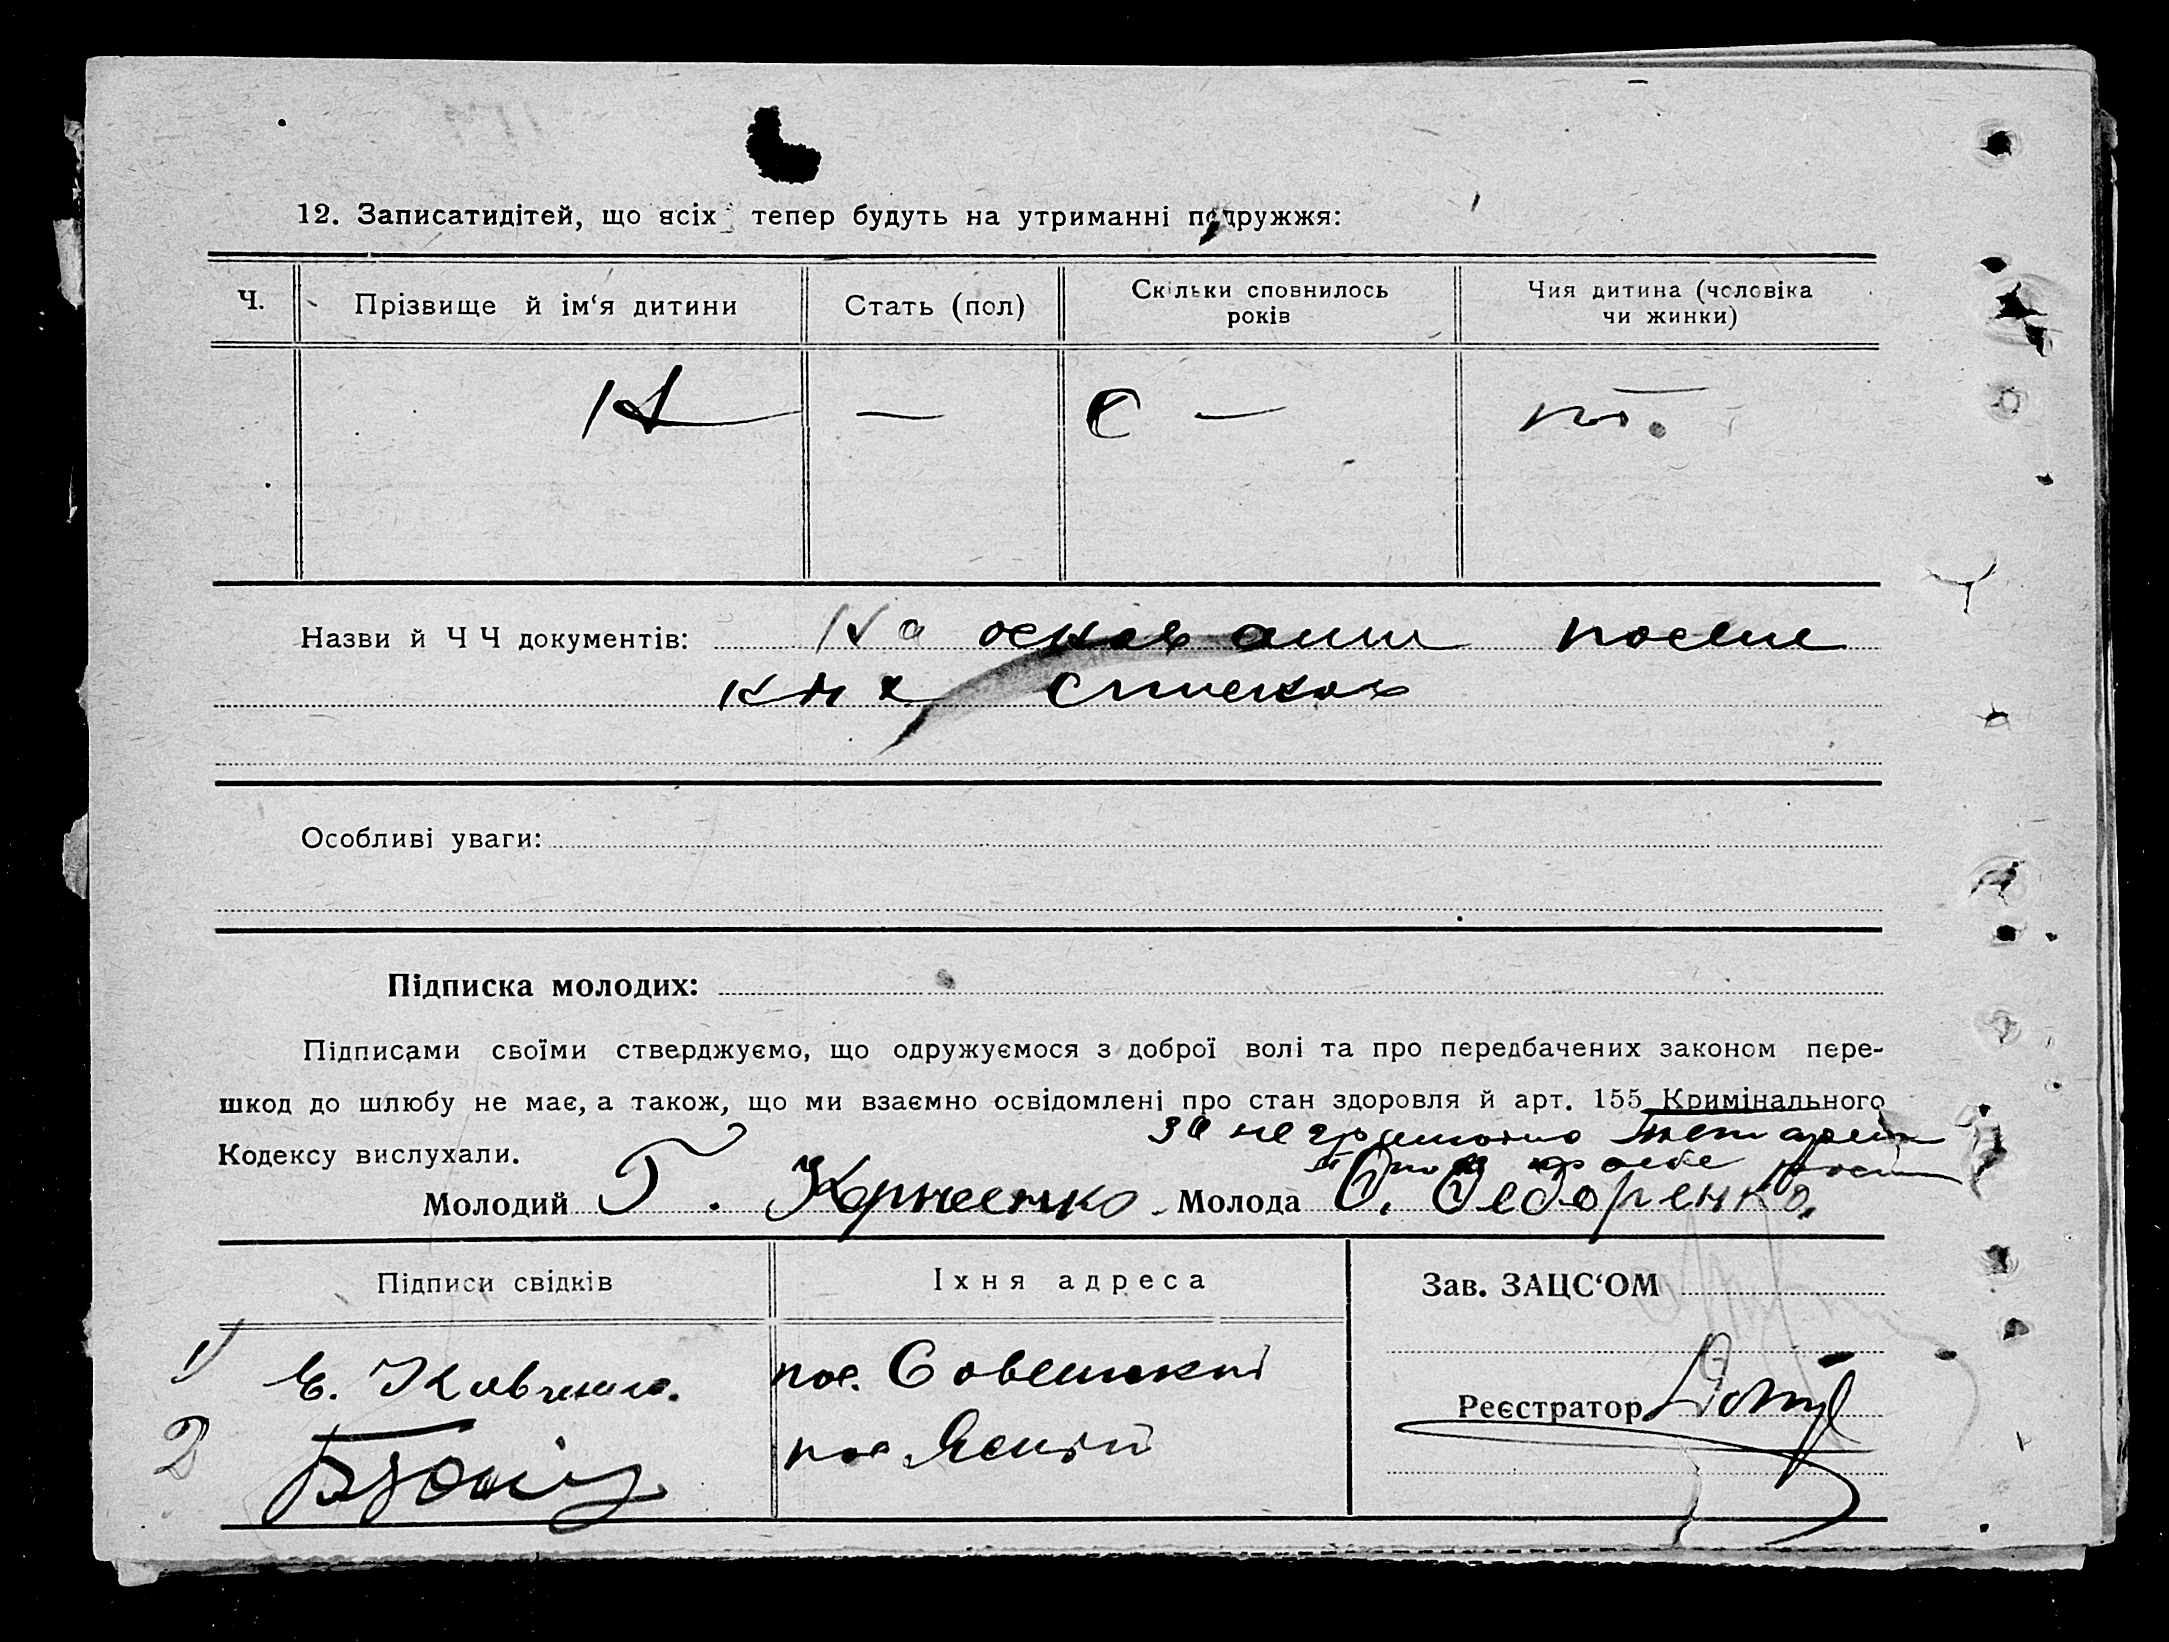 12. Записатидітей, що всіх тепер будуть на утриманні подружжя:
Ч. Прізвище й ім‘я дитини Стать (пол) Скільки сповнилось років Чия дитина (чоловіка чи жинки)
Н — Е — т.
Назви й Ч Ч документів: На основании посел
ких списков
Особливі уваги:
Підписка молодих:
Підписами своїми стверджуємо, що одружуємося з доброї волі та про передбачених законом пере-
шкод до шлюбу не має, а також, що ми взаємно освідомлені про стан здоровля й арт. 155 Кримінального
за неграмотно
Кодексу вислухали.
Молодий Г. Корнеенко Молода О. Федоренко.
Підписи свідків Їхня адреса Зав. ЗАЦС‘ОМ
1) пос. Советский
Реєстратор
2 пос Ясний